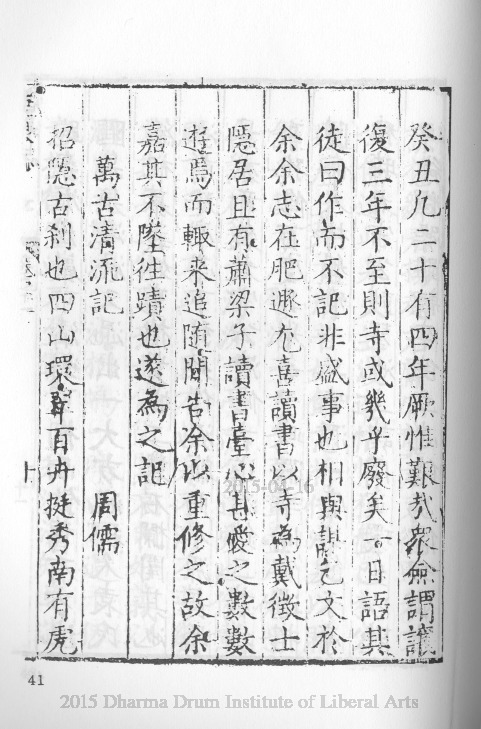 癸丑凡二十有四年厥惟艱哉衆僉謂讓
復三年不至則寺或幾乎廢矣一日語其
徒曰作而不記非盛事也相與謀乞文於
余余志在肥遯尤喜讀書以寺為戴徵士
隱居且有蕭梁子讀書臺心甚愛之數數
遊焉而輙来追随間告余以重修之故余
嘉其不墜往蹟也遂為之記
萬古清流記 周儒
招隱古刹也四山環翠百卉挺秀南有虎
十
41
2015-04-16
2015 Dharma Drum Institute of Liberal Arts